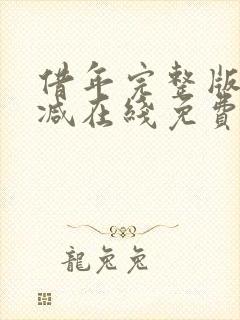 借年完整版
减在线免費
龍兔兔